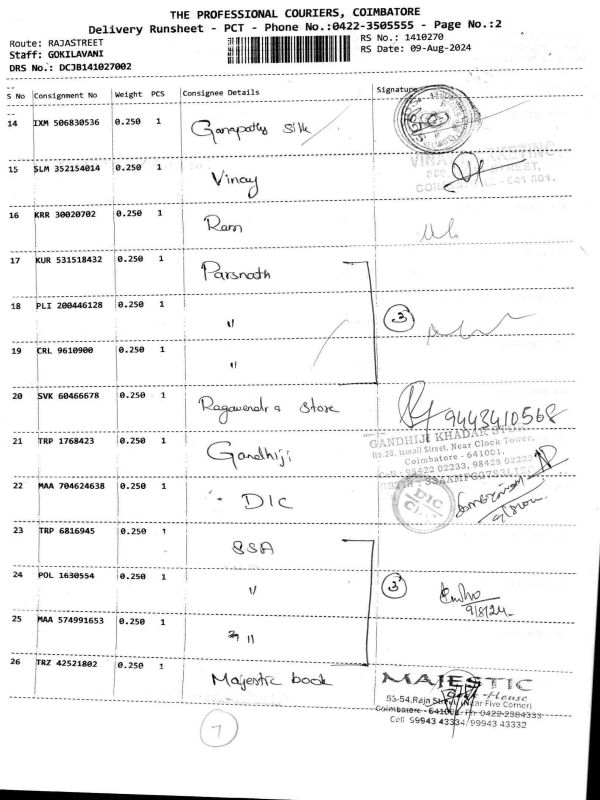 THE PROFESSIONAL COURIERS, COIMBATORE
Delivery Runsheet - PCT - Phone No.:0422-3505555 - Page No.:2
Route: RAJASTREET
Staff: GOKILAVANI
DRS No.: DCJB141027002
RS No.: 1410270
RS Date: 09-Aug-2024
S No Consignment No Weight PCS Consignee Details Signature
14 IXM 506830536 0.250 1 Ganapathy Silk
15 SLM 352154014 0.250 1 Vinay
STREET,
641 001.
16 KRR 30020702 0.250 1 Ram
17 KUR 531518432 0.250 1 Parsnath
18 PLI 200446128 0.250 1 " 3
19 CRL 9610900 0.250 1 "
20 SVK 60466678 0.250 1 Ragavendra Store 9443410568
21 TRP 1768423 0.250 1 Gandhiji
GANDHIJI KHADAR STORE
No.28, Ismail Street, Near Clock Tower,
Coimbatore - 641001.
Cell : 98422 02233, 98428 02232
22 MAA 704624638 0.250 1 DIC
DIC
23 TRP 6816945 0.250 1 SSA
24 POL 1630554 0.250 1 " 3
9/8/24
25 MAA 574991653 0.250 1 "
26 TRZ 42521802 0.250 1 Majestic book
MAJESTIC
Book House
53-54, Raja Street, (Near Five Corner)
Coimbatore - 641001. Ph: 0422-2384333
Cell 99943 43334, 99943 43332
7